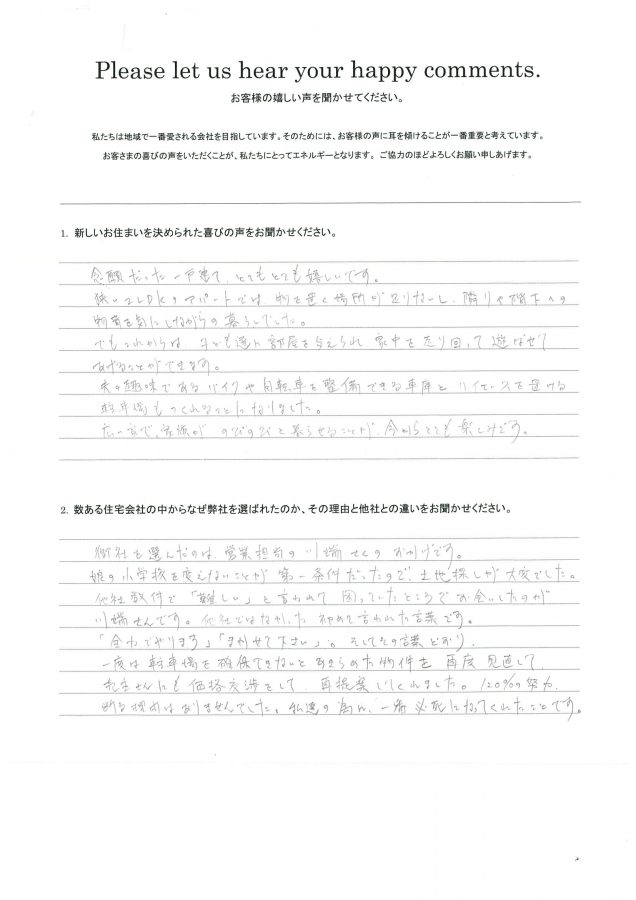 Please let us hear your happy comments.
お客様の嬉しい声を聞かせてください。
私たちは地域で一番愛される会社を目指しています。そのためには、お客様の声に耳を傾けることが一番重要と考えています。
お客さまの喜びの声をいただくことが、私たちにとってエネルギーとなります。ご協力のほどよろしくお願い申しあげます。
1. 新しいお住まいを決められた喜びの声をお聞かせください。
念願だった一戸建て、とてもとても嬉しいです。
狭い2LDKのアパートでは、物を置く場所が足りないし、隣りや階下への
物音を気にしながらの暮らしでした。
でもこれからは、子ども達に部屋を与えられ、家中を走り回って遊ばせて
あげることができます。
夫の趣味であるバイクや自転車を整備できる車庫と ハイエースを置ける
駐車場もつくれることになりました。
広い家で、家族がのびのびと暮らせることが、今からとても楽しみです。
2. 数ある住宅会社の中からなぜ弊社を選ばれたのか、その理由と他社との違いをお聞かせください。
御社を選んだのは、営業担当の川端さんのおかげです。
娘の小学校を変えないことが第一条件だったので、土地探しが大変でした。
他社数件で「難しい」と言われて困っていたところでお会いしたのが
川端さんです。他社ではなかった初めて言われた言葉です。
「全力でやります」「まかせて下さい」。そしてその言葉どおり、
一度は駐車場を確保できないとあきらめた物件を再度見直して、
売主さんにも価格交渉をして、再提案してくれました。120%の努力、
断る理由はありませんでした。私達の為に、一番必死になってくれたことです。